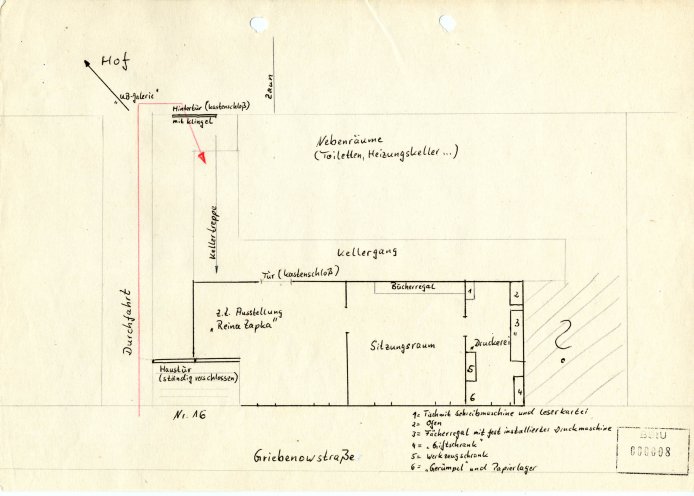 Hof
"UB-Galerie"
Zaun
Hintertür (Kastenschloß)
mit Klingel
Nebenräume
(Toiletten, Heizungskeller ...)
Kellertreppe
Kellergang
Tür (Kastenschloß)
Bücherregal
1
2
z.Z. Ausstellung
"Reina Zapka"
3
Durchfahrt
Sitzungsraum
"Druckerei"
?
5
Haustür
(ständig verschlossen)
4
6
Nr. 16
1= Tisch mit Schreibmaschine und Leserkartei
2= Ofen
3= Fächerregal mit fest installierter Druckmaschine
4= "Giftschrank"
5= Werkzeugschrank
6= "Gerümpel" und Papierlager
Griebenowstraße
BStU
000008